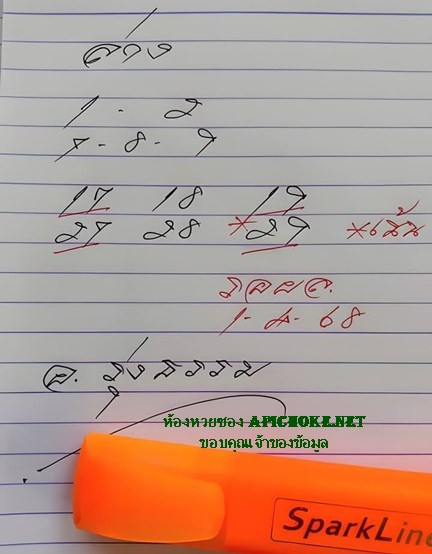 ล่าง
1 - 2
7 - 8 - 9
17 18 19
27 28 *29 *เน้น
รอผล.
1-4-68
อ. รุ่งธรรม
ห้องหวยซอง APICHOKE.NET
ขอบคุณเจ้าของข้อมูล
SparkLine